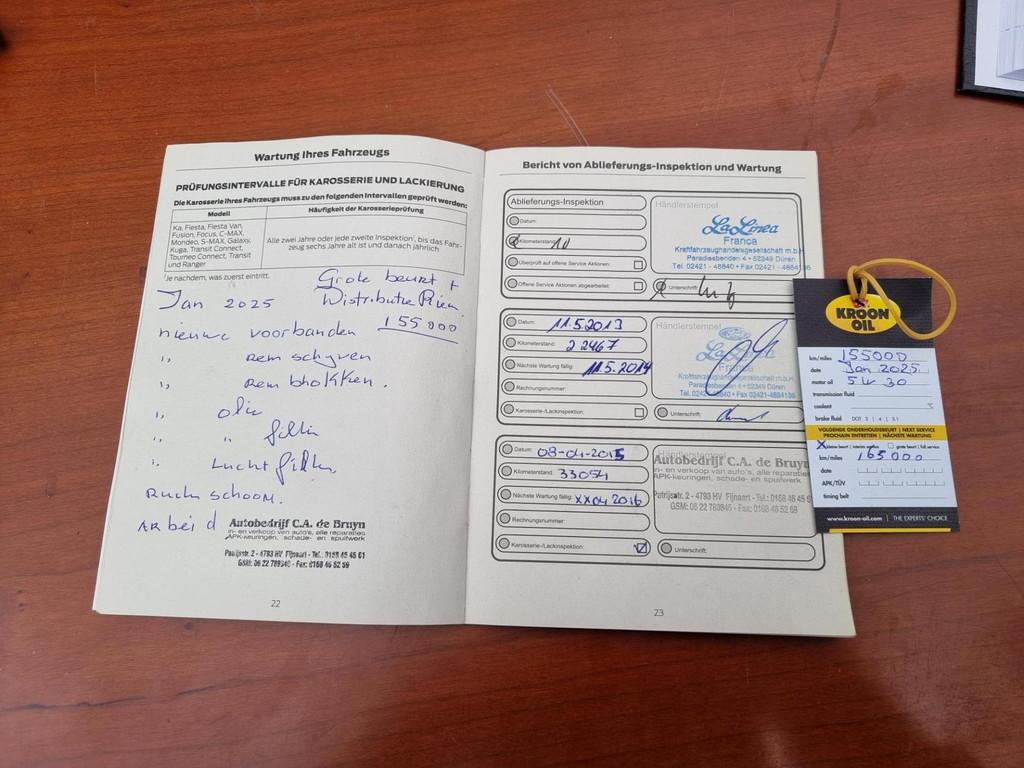 Wartung Ihres Fahrzeugs
PRÜFUNGSINTERVALLE FÜR KAROSSERIE UND LACKIERUNG
Die Karosserie Ihres Fahrzeugs muss zu den folgenden Intervallen geprüft werden:
Modell
Häufigkeit der Karosserieprüfung
Ka, Fiesta, Fiesta Van,
Fusion, Focus, C-MAX,
Mondeo, S-MAX, Galaxy,
Kuga, Transit Connect,
Tourneo Connect, Transit
und Ranger
Alle zwei Jahre oder jede zweite Inspektion¹, bis das Fahr-
zeug sechs Jahre alt ist und danach jährlich
¹Je nachdem, was zuerst eintritt.
Grote beurt +
Jan 2025 Distributie Riem
nieuwe voorbanden 155000
,, Rem schyven
,, Rem blokken.
,, olie
,, ,, filter
,, Lucht filter
schoom.
Arbeid
Autobedrijf C.A. de Bruyn
in- en verkoop van auto's, alle reparaties
APK-keuringen, schade- en spuitwerk
2 - 4793 HV Fijnaart - Tel.:
Fax: 0168 46 52 59
22
Bericht von Ablieferungs-Inspektion und Wartung
Ablieferungs-Inspektion
Datum:
Kilometerstand: 10
Überprüft auf offene Service Aktionen:
Offene Service Aktionen abgearbeitet:
Händlerstempel
La Linea
Franca
Kraftfahrzeughandelsgesellschaft m.b.H.
Paradiesbenden 4 • 52349 Düren
Tel. 02421 -
Unterschrift:
Datum: 11.5.2013
Kilometerstand: 22467
Nächste Wartung fällig: 11.5.2014
Rechnungsnummer:
Karosserie-/Lackinspektion:
Händlerstempel
Franca
Unterschrift:
Datum: 08-04-2015
Kilometerstand: 33054
Nächste Wartung fällig: XX04 2016
Rechnungsnummer:
Karosserie-/Lackinspektion:
Händlerstempel
Autobedrijf C.A. de Bruyn
in- en verkoop van auto's, alle reparaties
APK-keuringen, schade- en spuitwerk
2 - 4793 HV Fijnaart - Tel.:
Fax: 0168 46 52 59
Unterschrift:
23
KROON
OIL
km/miles 155000
date Jan 2025
motor oil 5W30
transmission fluid
coolant
brake fluid DOT 3 | 4 | 5.1
VOLGENDE ONDERHOUDSBEURT | NEXT SERVICE
PROCHAIN ENTRETIEN | NÄCHSTE WARTUNG
X kleine beurt | interim service grote beurt | full service
km/miles 165000
date
APK/TÜV
timing belt
www.kroon-oil.com | THE EXPERTS' CHOICE